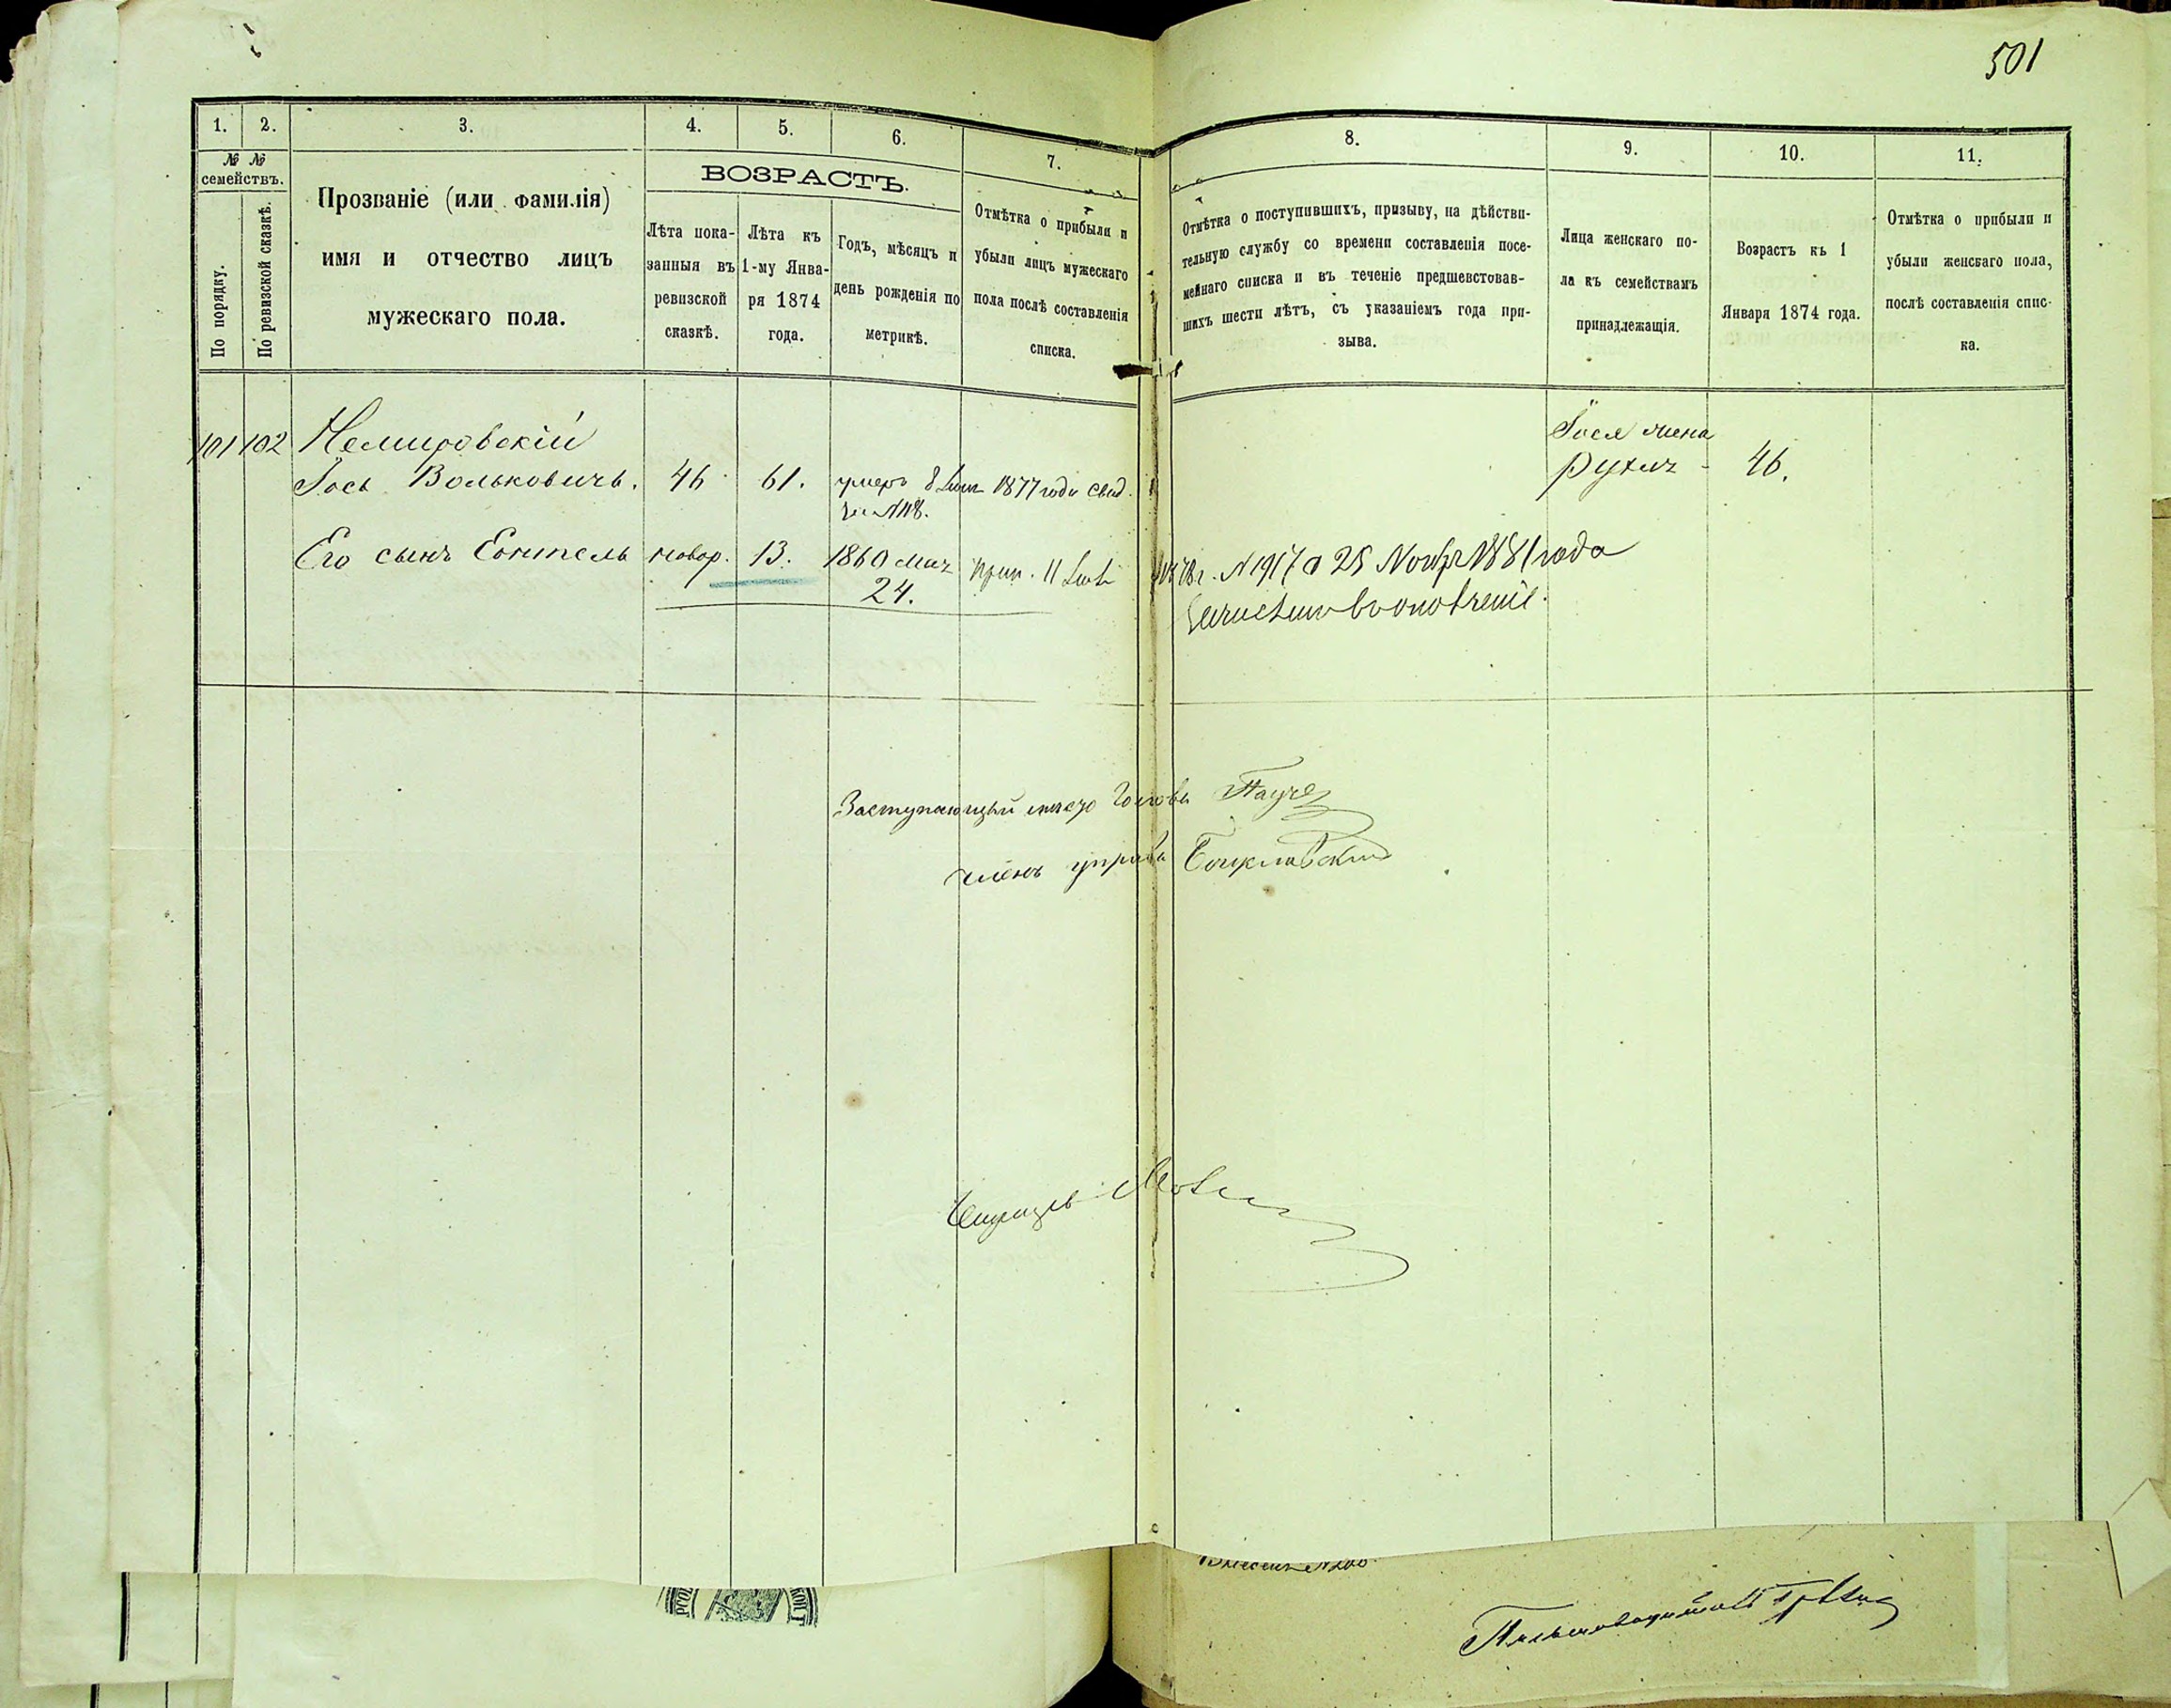 501
1.
2.
3.
4.
5.
6.
7.
8.
9.
10.
11.
№ №
семействъ.
По порядку.
По ревизской сказкѣ.
Прозваніе (или фамилія)
имя и отчество лицъ
мужескаго пола.
ВОЗРАСТЪ.
Лѣта пока-
занныя въ
ревизской
сказкѣ.
Лѣта къ
1-му Янва-
ря 1874
года.
Годъ, мѣсяцъ и
день рожденія по
метрикѣ.
Отмѣтка о прибыли и
убыли лицъ мужескаго
пола послѣ составленія
списка.
Отмѣтка о поступившихъ, призыву, на дѣйстви-
тельную службу со времени составленія посе-
мейнаго списка и въ теченіе предшевствовав-
шихъ шести лѣтъ, съ указаніемъ года при-
зыва.
Лица женскаго по-
ла къ семействамъ
принадлежащія.
Возрастъ къ 1
Января 1874 года.
Отмѣтка о прибыли и
убыли женскаго пола,
послѣ составленія спис-
ка.
101 102 Немировскій
Іось Вольковичъ. 46 61. умеръ 8 1877 года свид.
№ 118.
Іося жена
Рухля 46.
Его сынъ новор. 13. 1860 Мая
24.
11 № 1917 25 Ноябр 1881 года
Заступающій мѣсто Головы
Членъ управы